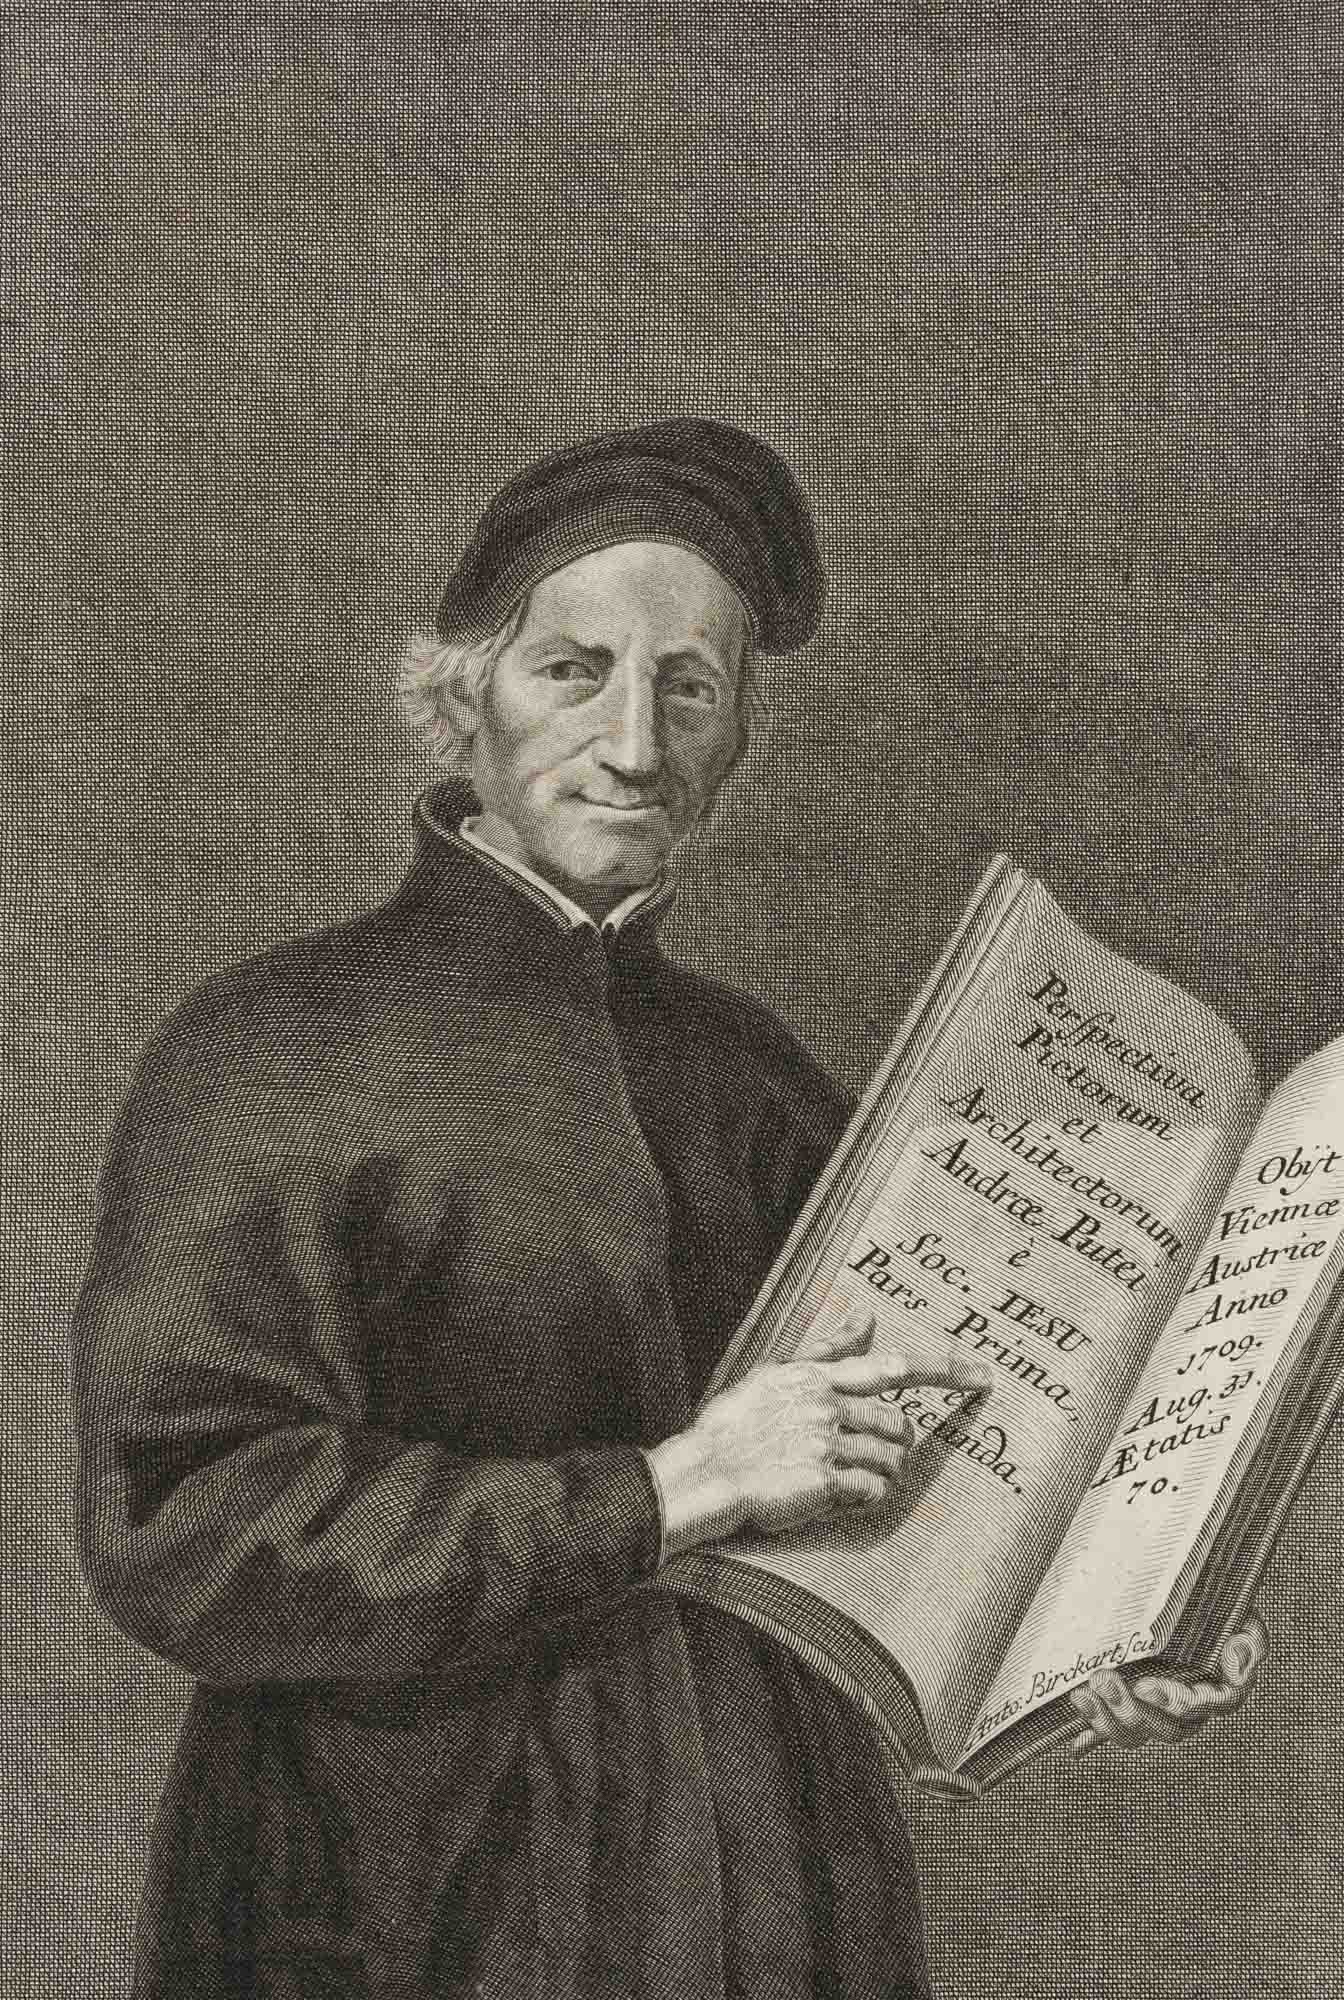 Perſpectiva
Pictorum
et
Architectorum
Andræ, Putei
è
Soc. IESU
Pars Prima,
et
Secunda.
Obijt
Viennæ
Austriæ
Anno
1709.
Aug. 31.
Ætatis
70.
Anto: Birckart ſcu